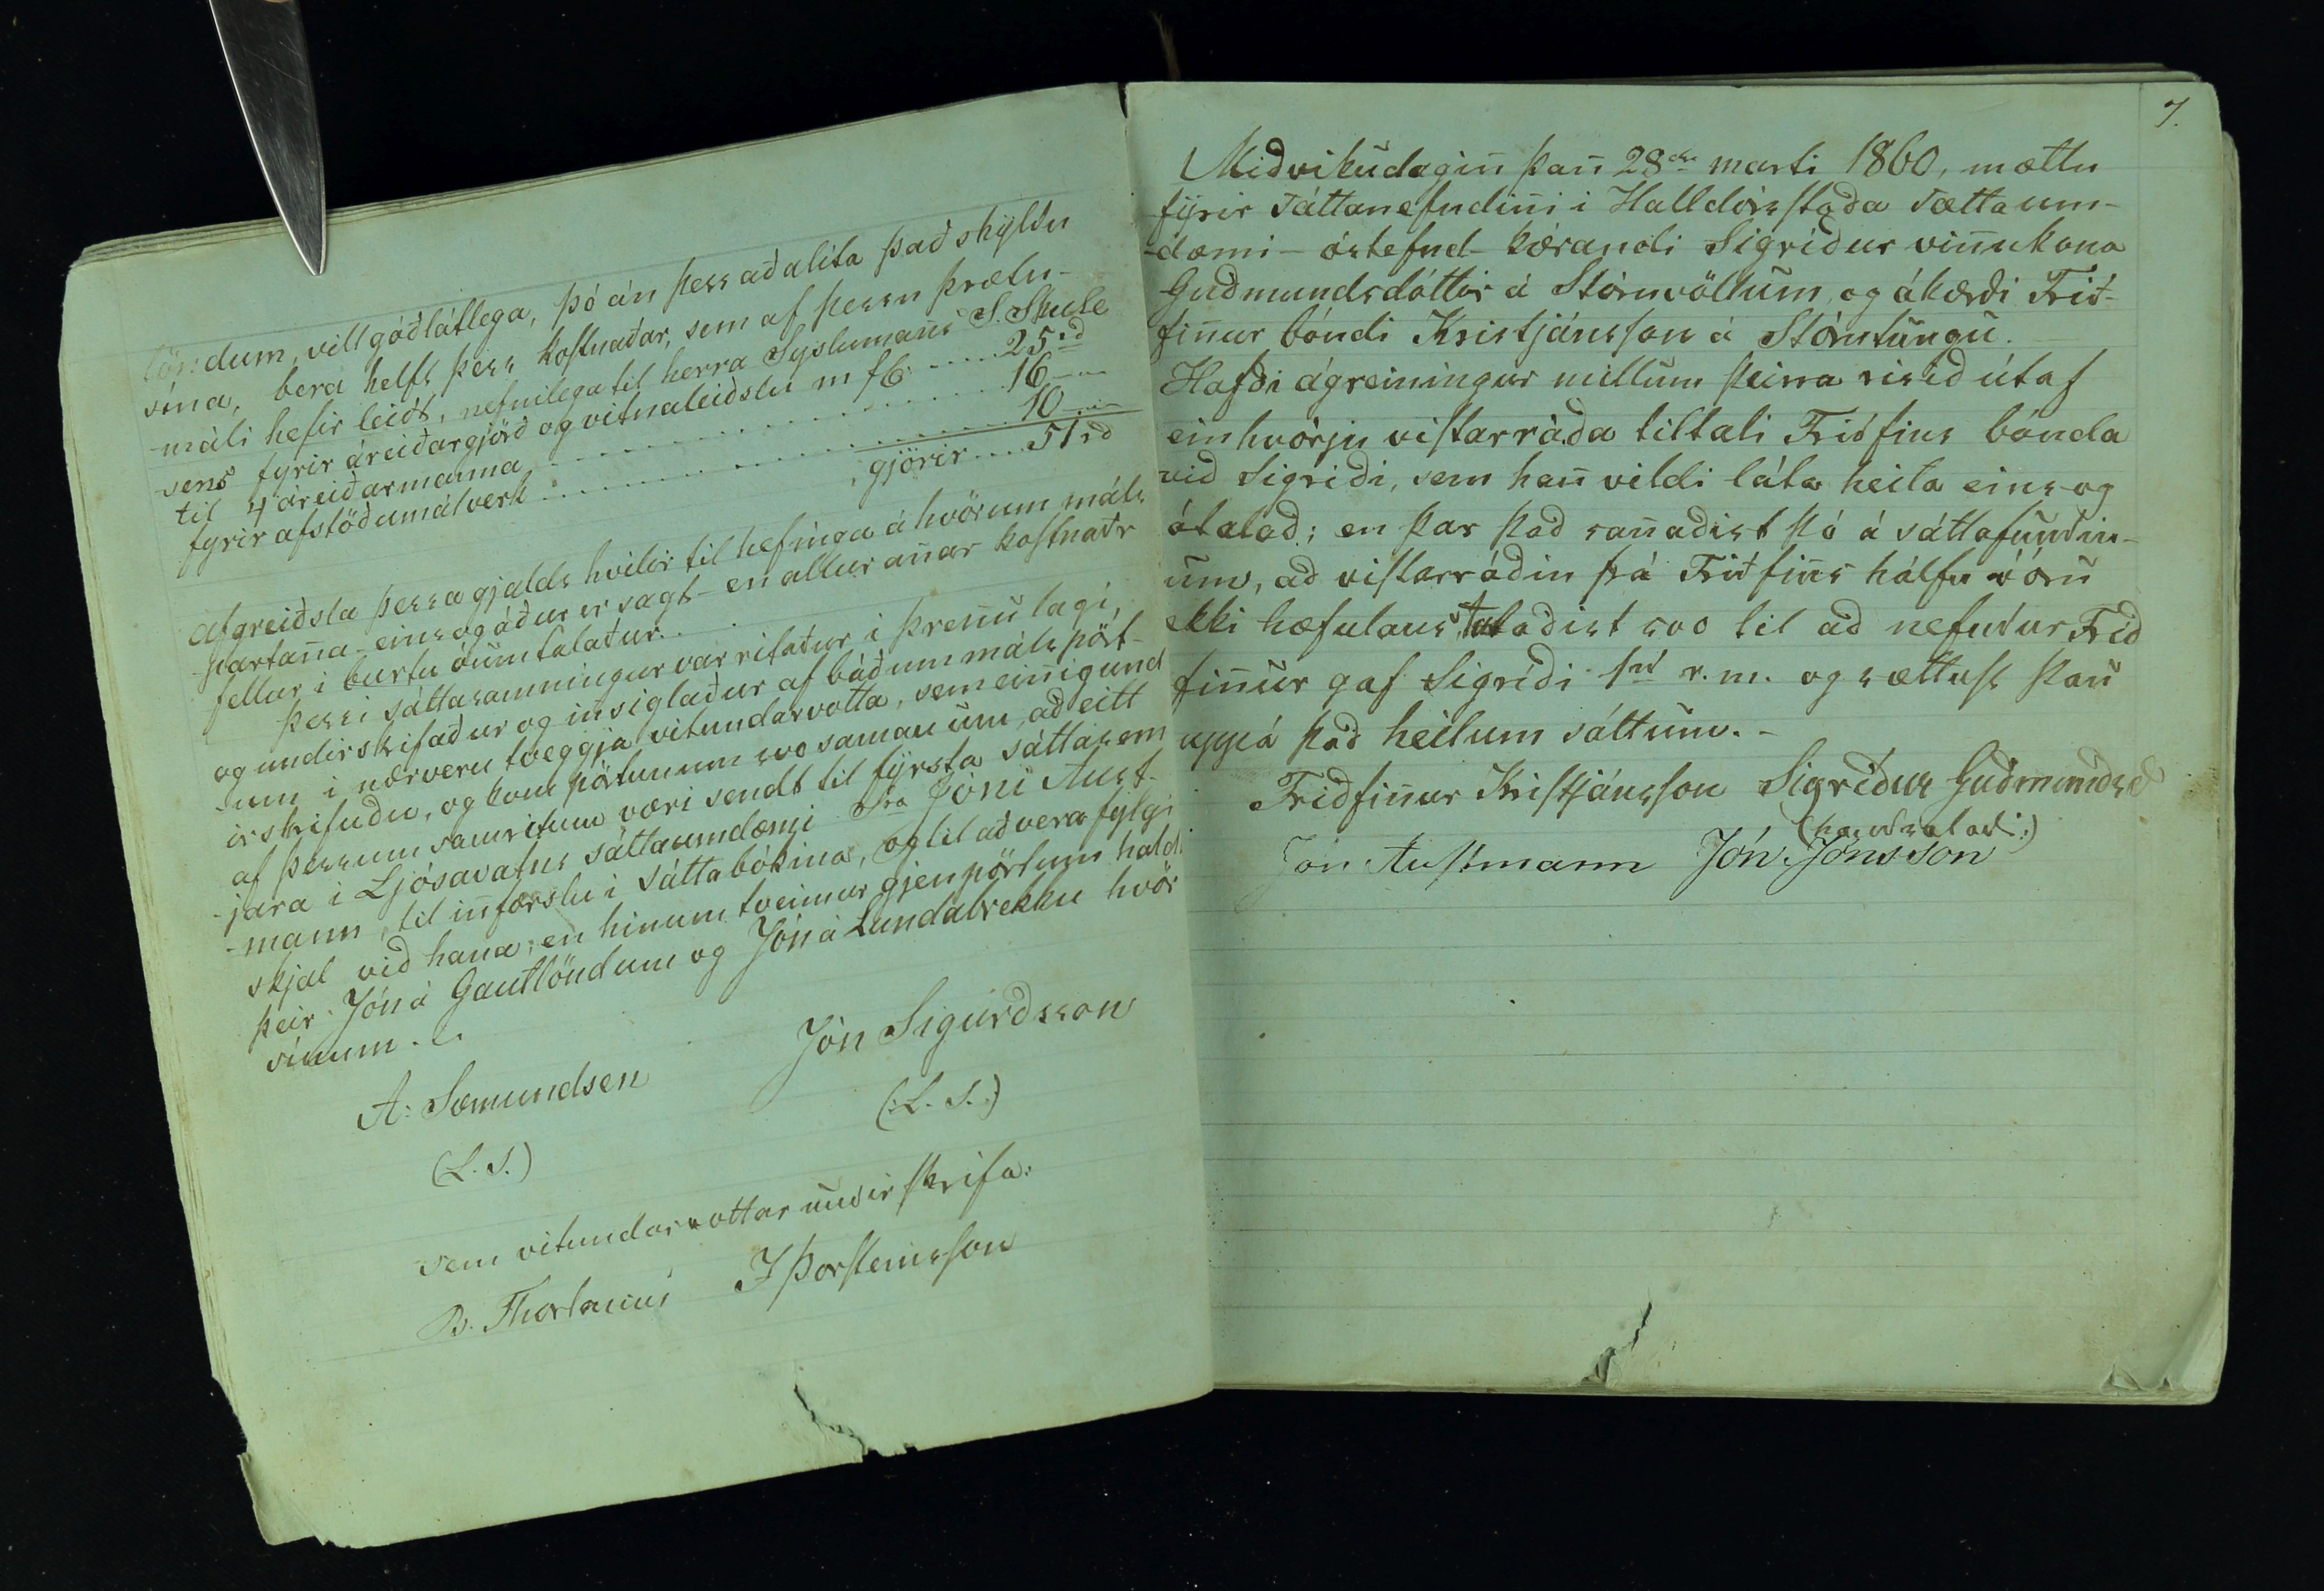 löndum, vill góðlátlega, þó án þess að alita það skyldu
sína, bera helft þess kostnaðar, sem af þessu þrætu-
-máli hefir leiðt, nefnilega til herra Syslumanns S. Skule
-sens fyrir áreiðargjörð og vitnaleiðslu m fl: .... 25 rd
til 4 áreiðarmanna ........ 16 —
fyrir afstöðumálverk ........ 10 —
gjörir .... 51 rd
Afgreiðsla þessa gjalds hvilir til hefinga á hvörum máls
partana - eins og áður er sagt - en allur anar kostnaðr
fellur i burtu óumtalaður.
Þessi sáttasamningur var ritaður i þrenu lagi,
og undirskrifaður og insiglaður af báðum máls pört-
-um i nærveru tveggja vitundarvotta, sem einnig und
irskrifuðu, og kom pörtunum svo saman um, að eitt
af þessum samritum væri sendt til fyrsta sáttasem
-jara i Ljósavatns sáttaumdæmi Sra Jóni Aust-
-mann, til innfærslu i sáttabókina, og til að vera fylgi
skjal við hana; en hinum tveimur gjenpörtum haldi
þeir Jón á Gautlöndum og Jón á Lundabrekku hvör
sínum.
A: Sæmundsen Jón Sigurðsson
(L. S.) (:L. S.:)
Sem vitundarvottar undirskrifa:
B. Thorlacius J Þorsteinsson
7.
Miðvikudaginn þann 28da marti 1860, mættu
fyrir Sáttanefndinni i Halldórsstaða Sættaum-
-dæmi - óstefnd - kærandi Sigríður vinnukona
Guðmundsdóttir á Stóruvöllum, og ákærði Frið-
finnur bóndi Kristjánsson á Stórutungu.
Hafði ágreiningur millum þeirra risið út af
einhvörju vistarráða tiltali Friðfins bónda
við Sigriði, sem hann vildi láta heita eins og
ótalað; en þar það sannaðist þó á sáttafundin-
um, að vistarráðin frá Friðfinns hálfu vóru
ekki hæfulaus, talaðist svo til að nefndur Frið
finnur gaf Sigríði 1rd r. m. og sættust þau
uppá það heilum sáttum. -
Friðfinnur Kristjánsson Sigríður Guðmundsd
(handsalaði:)
Jón Austmann Jón Jónsson